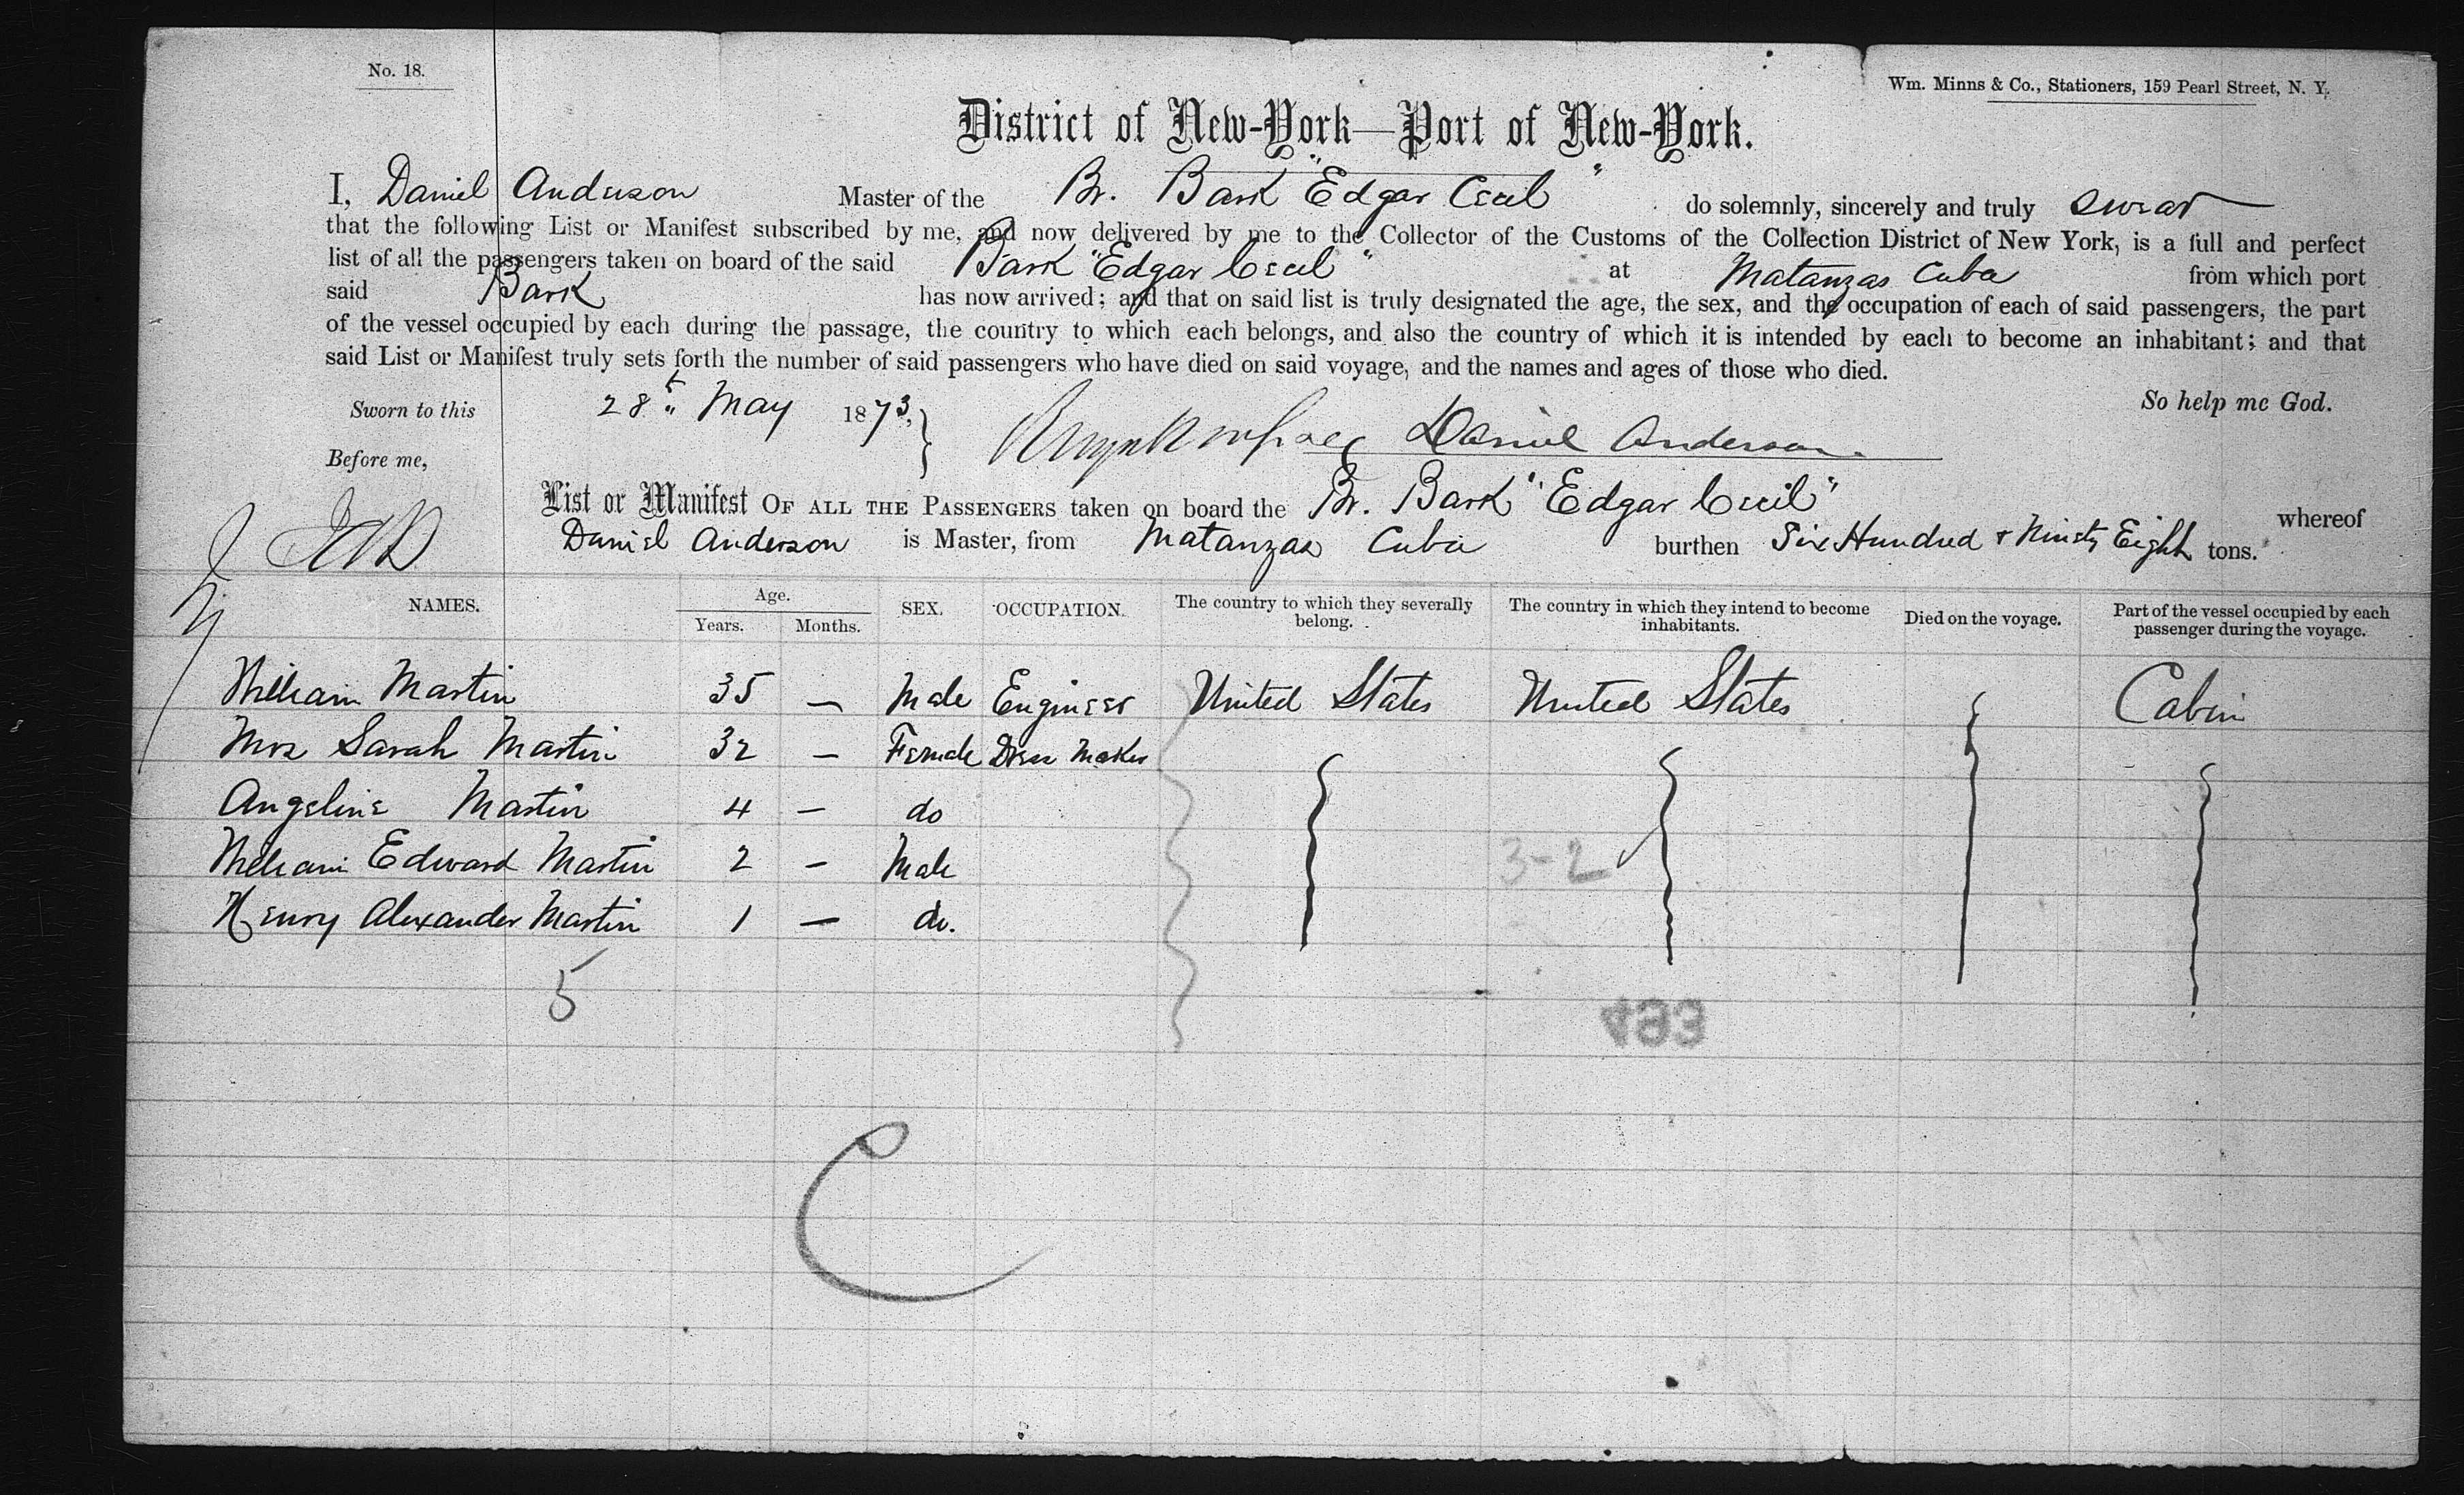 No. 18.
Wm. Minns & Co., Stationers, 159 Pearl Street, N. Y.
District of New-York—Port of New-York.
I, Daniel Anderson Master of the Br. Bark "Edgar Cecil" do solemnly, sincerely and truly swear
that the following List or Manifest subscribed by me, and now delivered by me to the Collector of the Customs of the Collection District of New York, is a full and perfect
list of all the passengers taken on board of the said Bark "Edgar Cecil" at Matanzas Cuba from which port
said Bark has now arrived; and that on said list is truly designated the age, the sex, and the occupation of each of said passengers, the part
of the vessel occupied by each during the passage, the country to which each belongs, and also the country of which it is intended by each to become an inhabitant; and that
said List or Manifest truly sets forth the number of said passengers who have died on said voyage, and the names and ages of those who died.
So help me God.
Sworn to this 28th May 1873, Daniel Anderson
Before me,
List or Manifest OF ALL THE PASSENGERS taken on board the Br. Bark "Edgar Cecil" whereof
Daniel Anderson is Master, from Matanzas Cuba burthen Six Hundred & Ninety Eight tons.
NAMES. Age. Years. Months. SEX. OCCUPATION. The country to which they severally belong. The country in which they intend to become inhabitants. Died on the voyage. Part of the vessel occupied by each passenger during the voyage.
William Martin 35 — Male Engineer United States United States Cabin
Mrs Sarah Martin 32 — Female Dress Maker
Angeline Martin 4 — do
William Edward Martin 2 — Male 3-2
Henry Alexander Martin 1 — do.
5
493
C